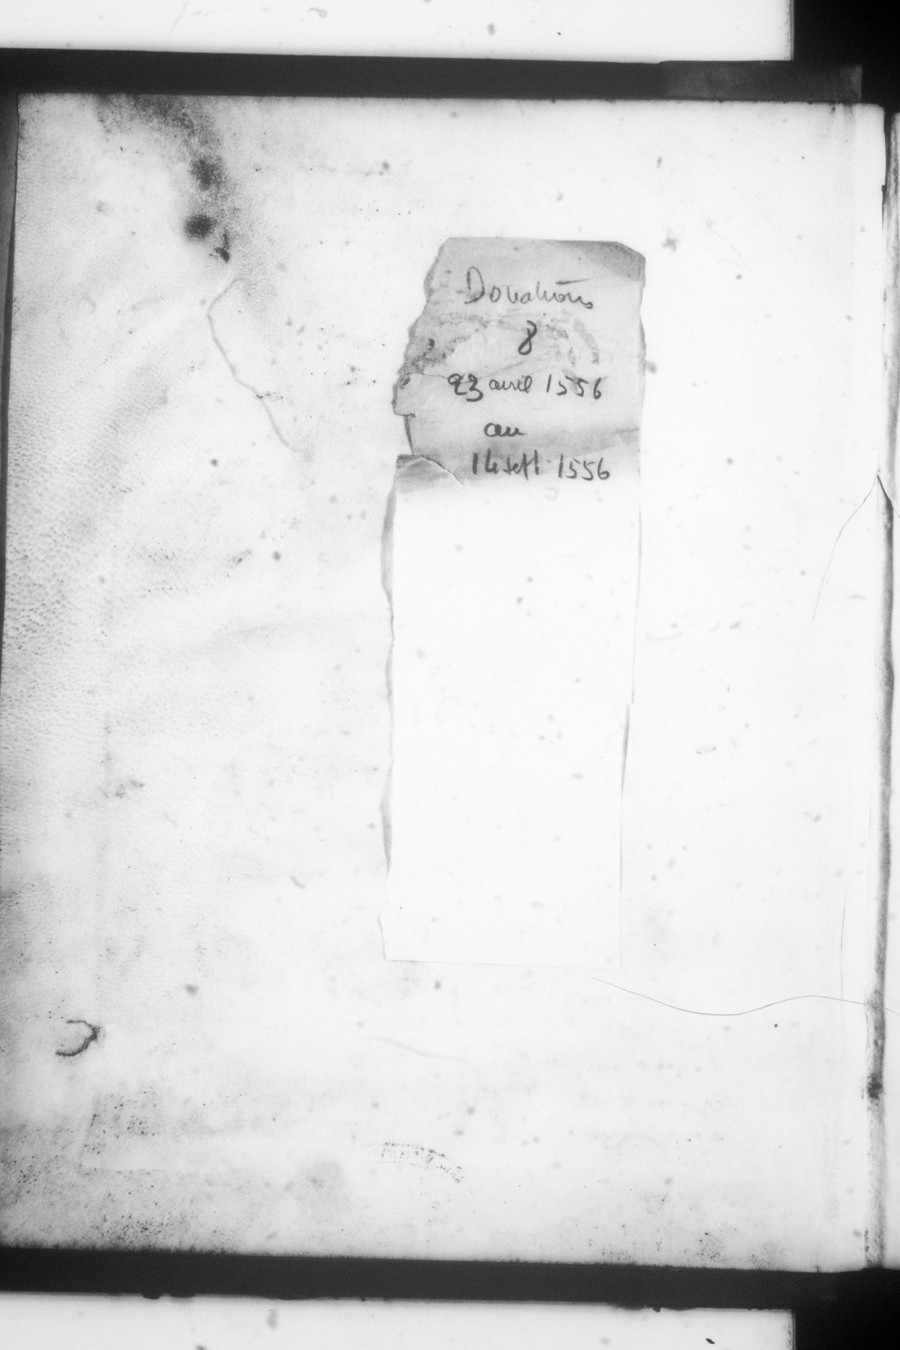 Donations
8
23 avril 1556
au
14 sept. 1556